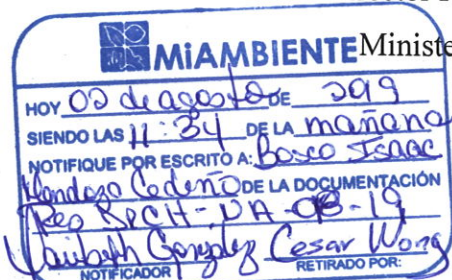 MIAMBIENTE Ministe
HOY 02 de agosto DE 2019
SIENDO LAS 11:34 DE LA mañana
NOTIFIQUE POR ESCRITO A: Bosco Isaac
Mendoza Cedeño DE LA DOCUMENTACIÓN
Res DRCH-DA-08-19
Yauibeth González Cesar Wong
NOTIFICADOR RETIRADO POR: